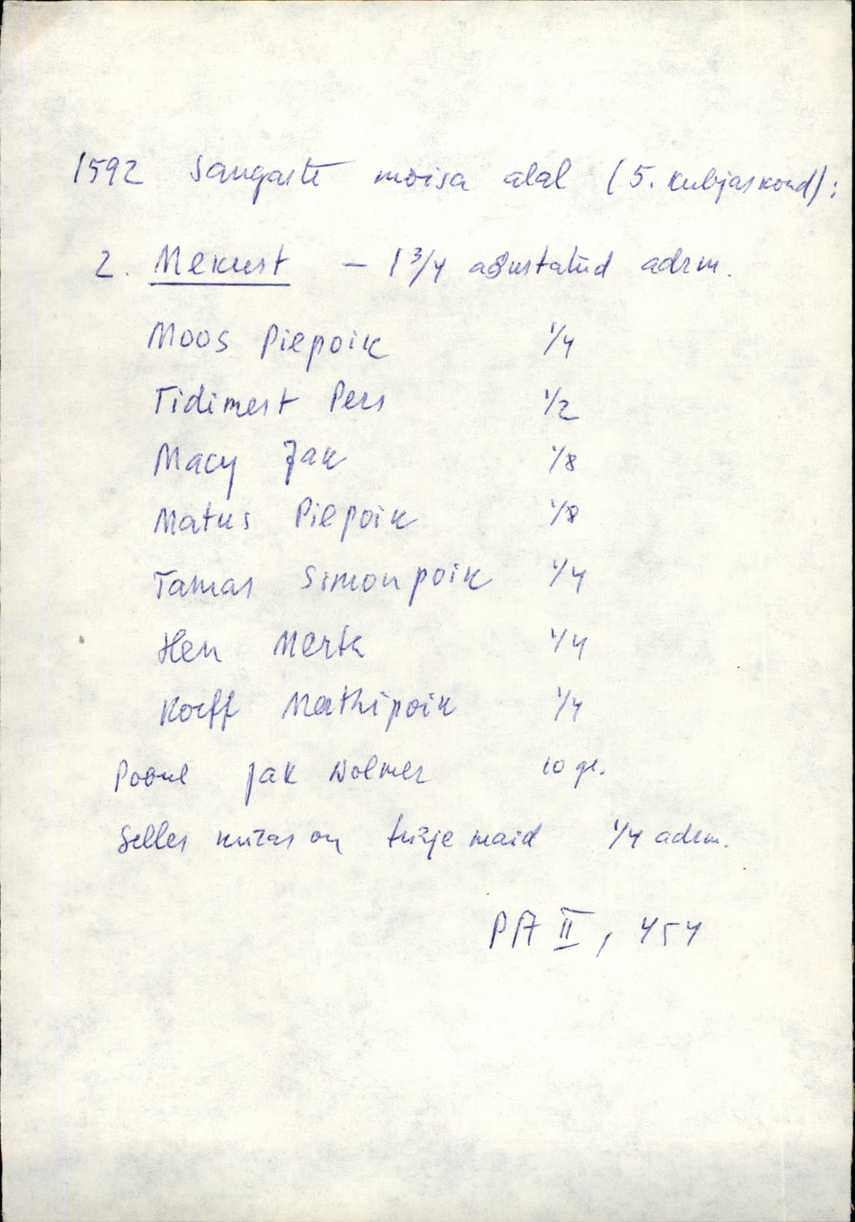 1592 Sangaste mõisa alal (5. kubjaskond):
2. Mekust — 1 3/4 asustatud adrm.
Moos Piepoik 1/4
Tidimest Pers 1/2
Macy Jak 1/8
Matus Piepoik 1/8
Tamas Simonpoik 1/4
Hen Merk 1/4
Korff Mathipoik 1/4
Pobul Jak Wolmer 10 gr.
Selles külas on tühje maid 1/4 adrm.
PA II, 454